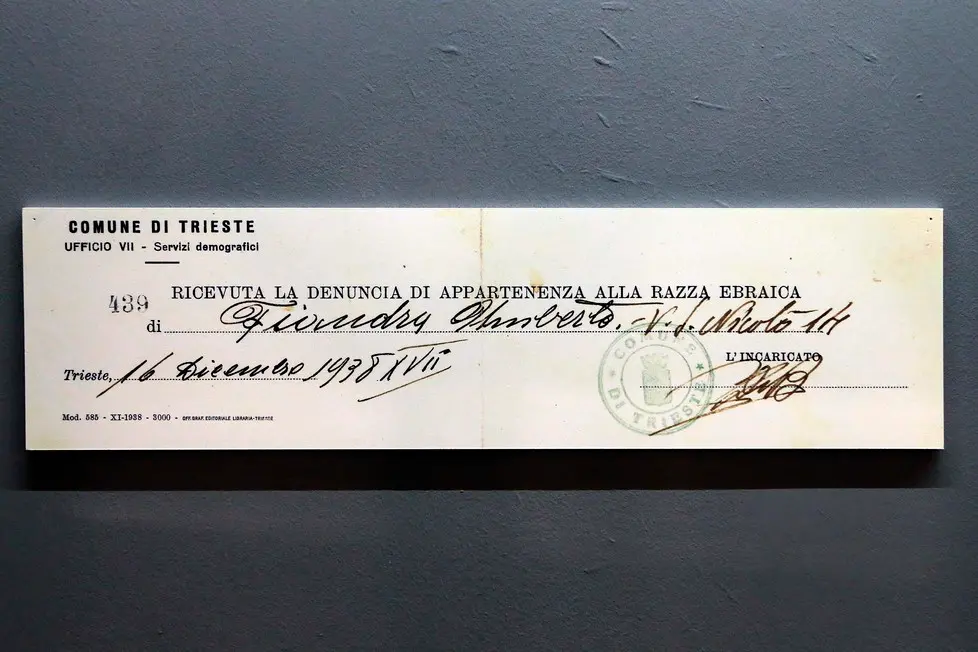 COMUNE DI TRIESTE
UFFICIO VII - Servizi demografici
439 RICEVUTA LA DENUNCIA DI APPARTENENZA ALLA RAZZA EBRAICA
di Fiandra Umberto. - V. S. Nicolò 14
Trieste, 16 Dicembre 1938 XVII
L'INCARICATO
COMUNE DI TRIESTE
Mod. 585 - XI-1938 - 3000 - OFF. GRAF. EDITORIALE LIBRARIA-TRIESTE